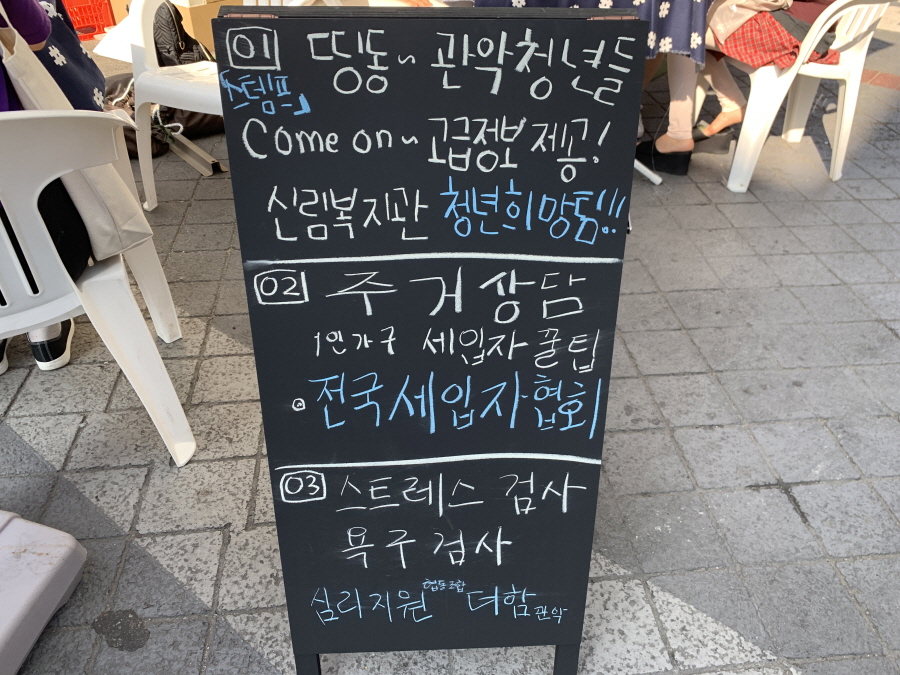 01 띵동~ 관악청년들
스템프
Come on~ 고급정보 제공!
신림복지관 청년희망톰!!!
02 주거상담
1인가구 세입자 꿀팁
전국세입자협회
03 스트레스 검사
욕구검사
심리지원 협동조합 더함 관악